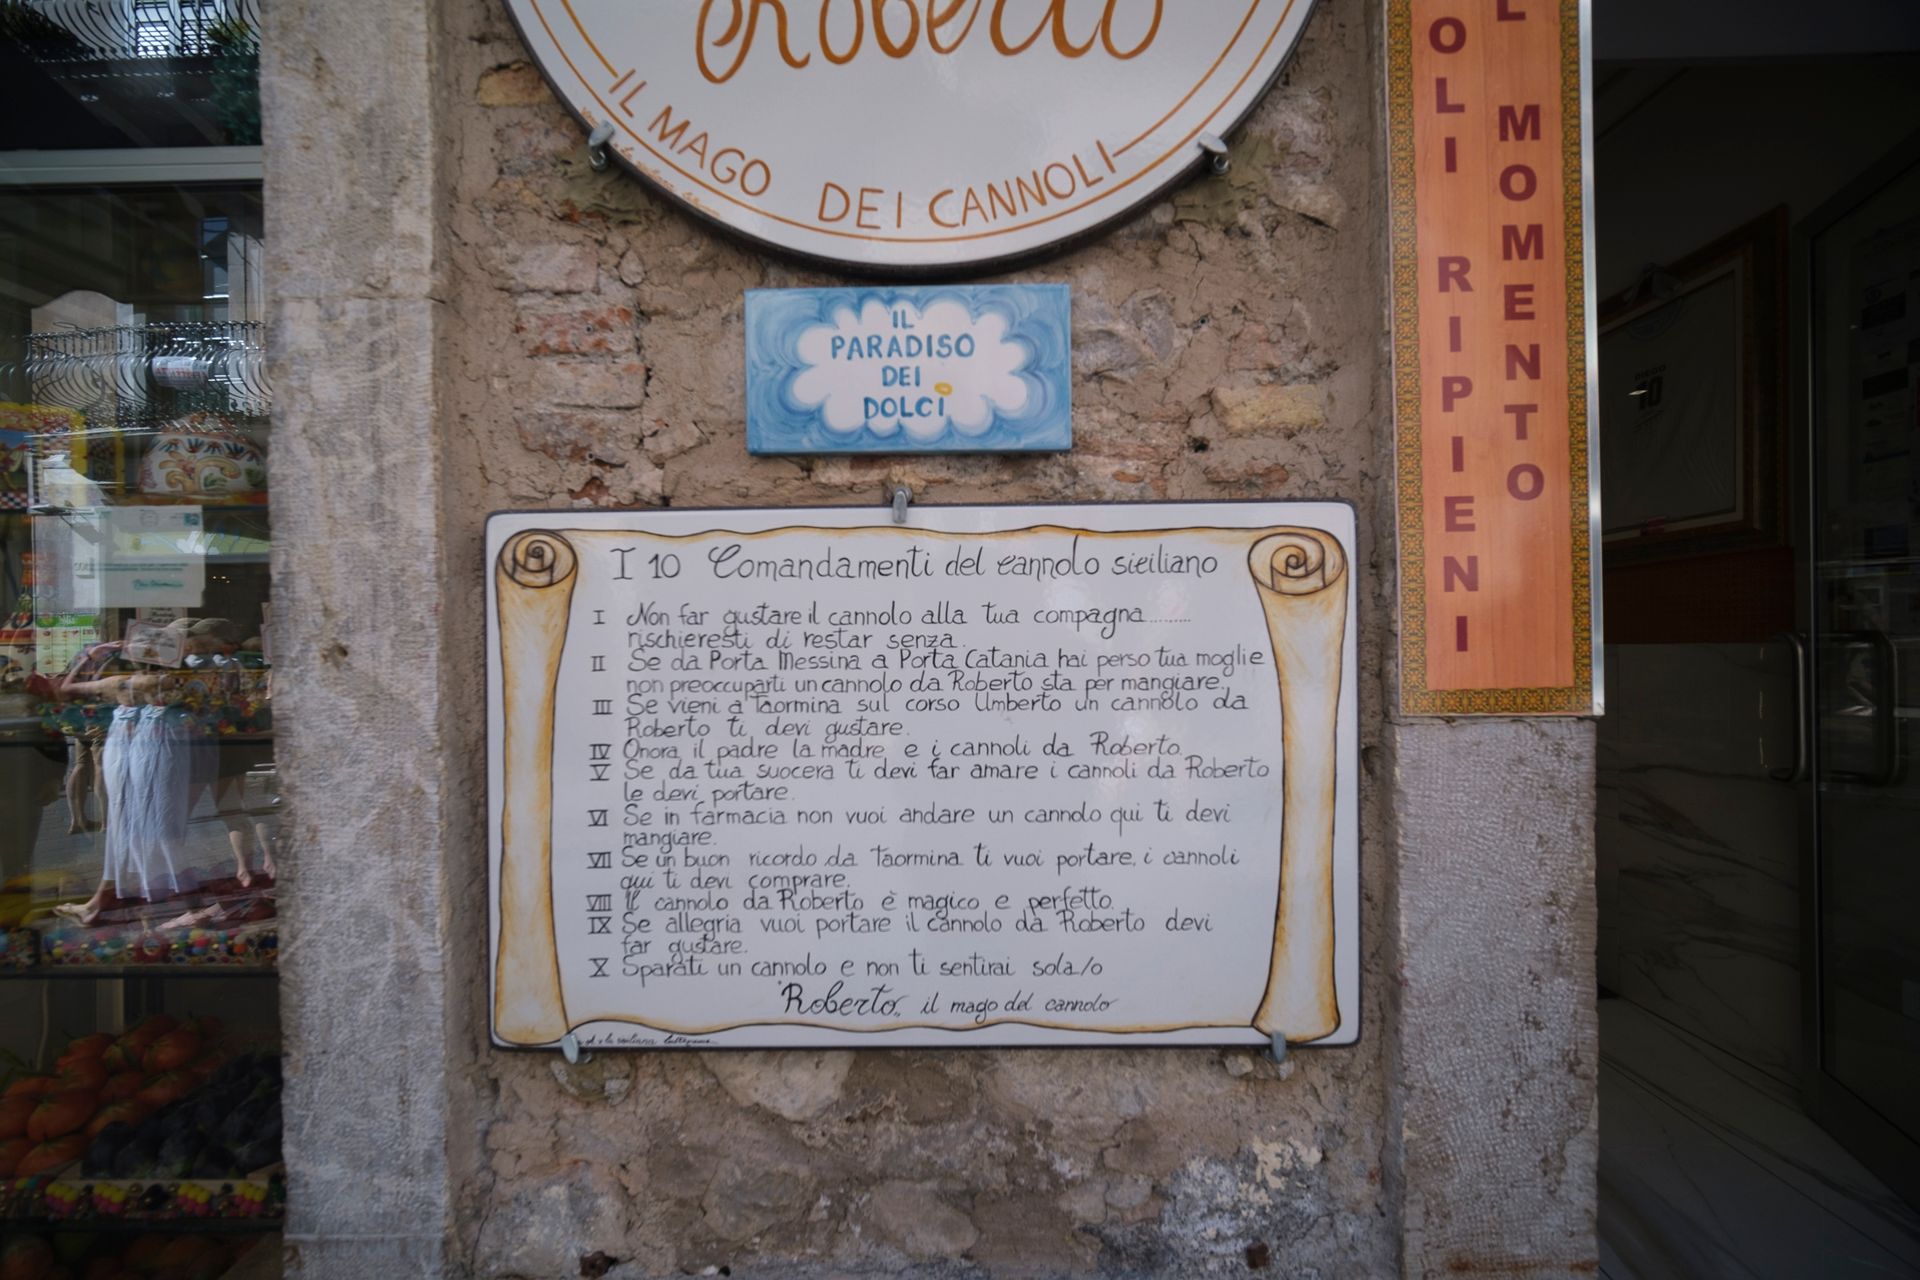 Roberto
IL MAGO DEI CANNOLI
IL
PARADISO
DEI
DOLCI
I 10 Comandamenti del cannolo siciliano
I Non far gustare il cannolo alla tua compagna.........
rischieresti di restar senza.
II Se da Porta Messina a Porta Catania hai perso tua moglie
non preoccuparti un cannolo da Roberto sta per mangiare.
III Se vieni a Taormina sul corso Umberto un cannolo da
Roberto ti devi gustare.
IV Onora il padre la madre e i cannoli da Roberto.
V Se da tua suocera ti devi far amare i cannoli da Roberto
le devi portare.
VI Se in farmacia non vuoi andare un cannolo qui ti devi
mangiare.
VII Se un buon ricordo da Taormina ti vuoi portare, i cannoli
qui ti devi comprare.
VIII Il cannolo da Roberto è magico e perfetto.
IX Se allegria vuoi portare il cannolo da Roberto devi
far gustare.
X Sparati un cannolo e non ti sentirai sola/o
"Roberto" il mago del cannolo
OLI RIPIENI
L MOMENTO
DIEGO
10